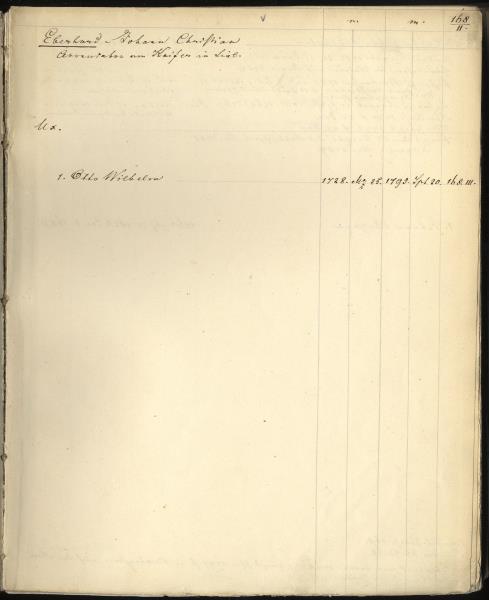 n. m. 168
II.
Eberhard Johann Christian
Arrendator am Kaiser in Livl.
Ux.
1. Otto Wilhelm 1728. Mz 25. 1793. Spt. 20. 168. III.